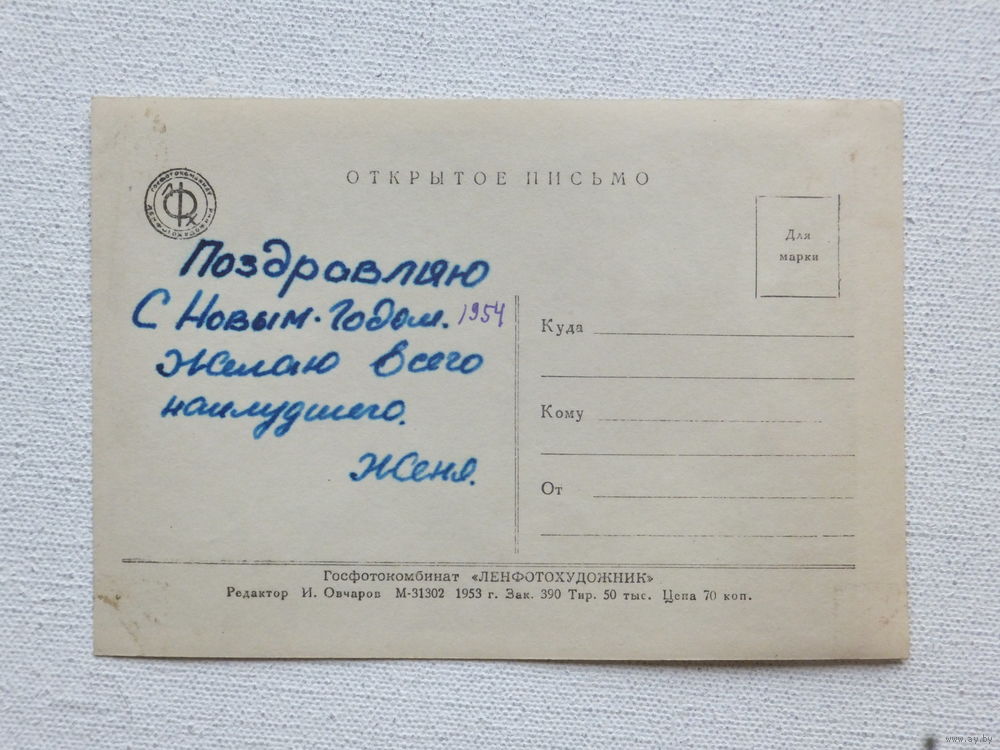 ОТКРЫТОЕ ПИСЬМО
ГОСФОТОКОМБИНАТ ЛЕНФОТОХУДОЖНИК
ЛФХ
Для
марки
Поздравляю
С Новым·Годом. 1954
Желаю всего
наилудшего.
Женя.
Куда
Кому
От
Госфотокомбинат «ЛЕНФОТОХУДОЖНИК»
Редактор И. Овчаров М-31302 1953 г. Зак. 390 Тир. 50 тыс. Цена 70 коп.
www.ay.by